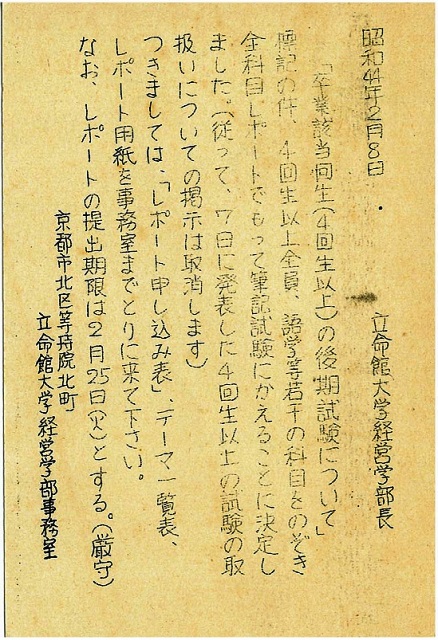 昭和44年2月8日
立命館大学経営学部長
「卒業該当回生(4回生以上)の後期試験について」
標記の件、4回生以上全員、語学等若干の科目をのぞき
全科目レポートでもって筆記試験にかえることに決定し
ました。(従って、7日に発表した4回生以上の試験の取
扱いについての掲示は取消します)
つきましては、「レポート申し込み表」、テーマ一覧表、
レポート用紙を事務室までとりに来て下さい。
なお、レポートの提出期限は2月25日(火)とする。(厳守)
京都市北区等持院北町
立命館大学経営学部事務室